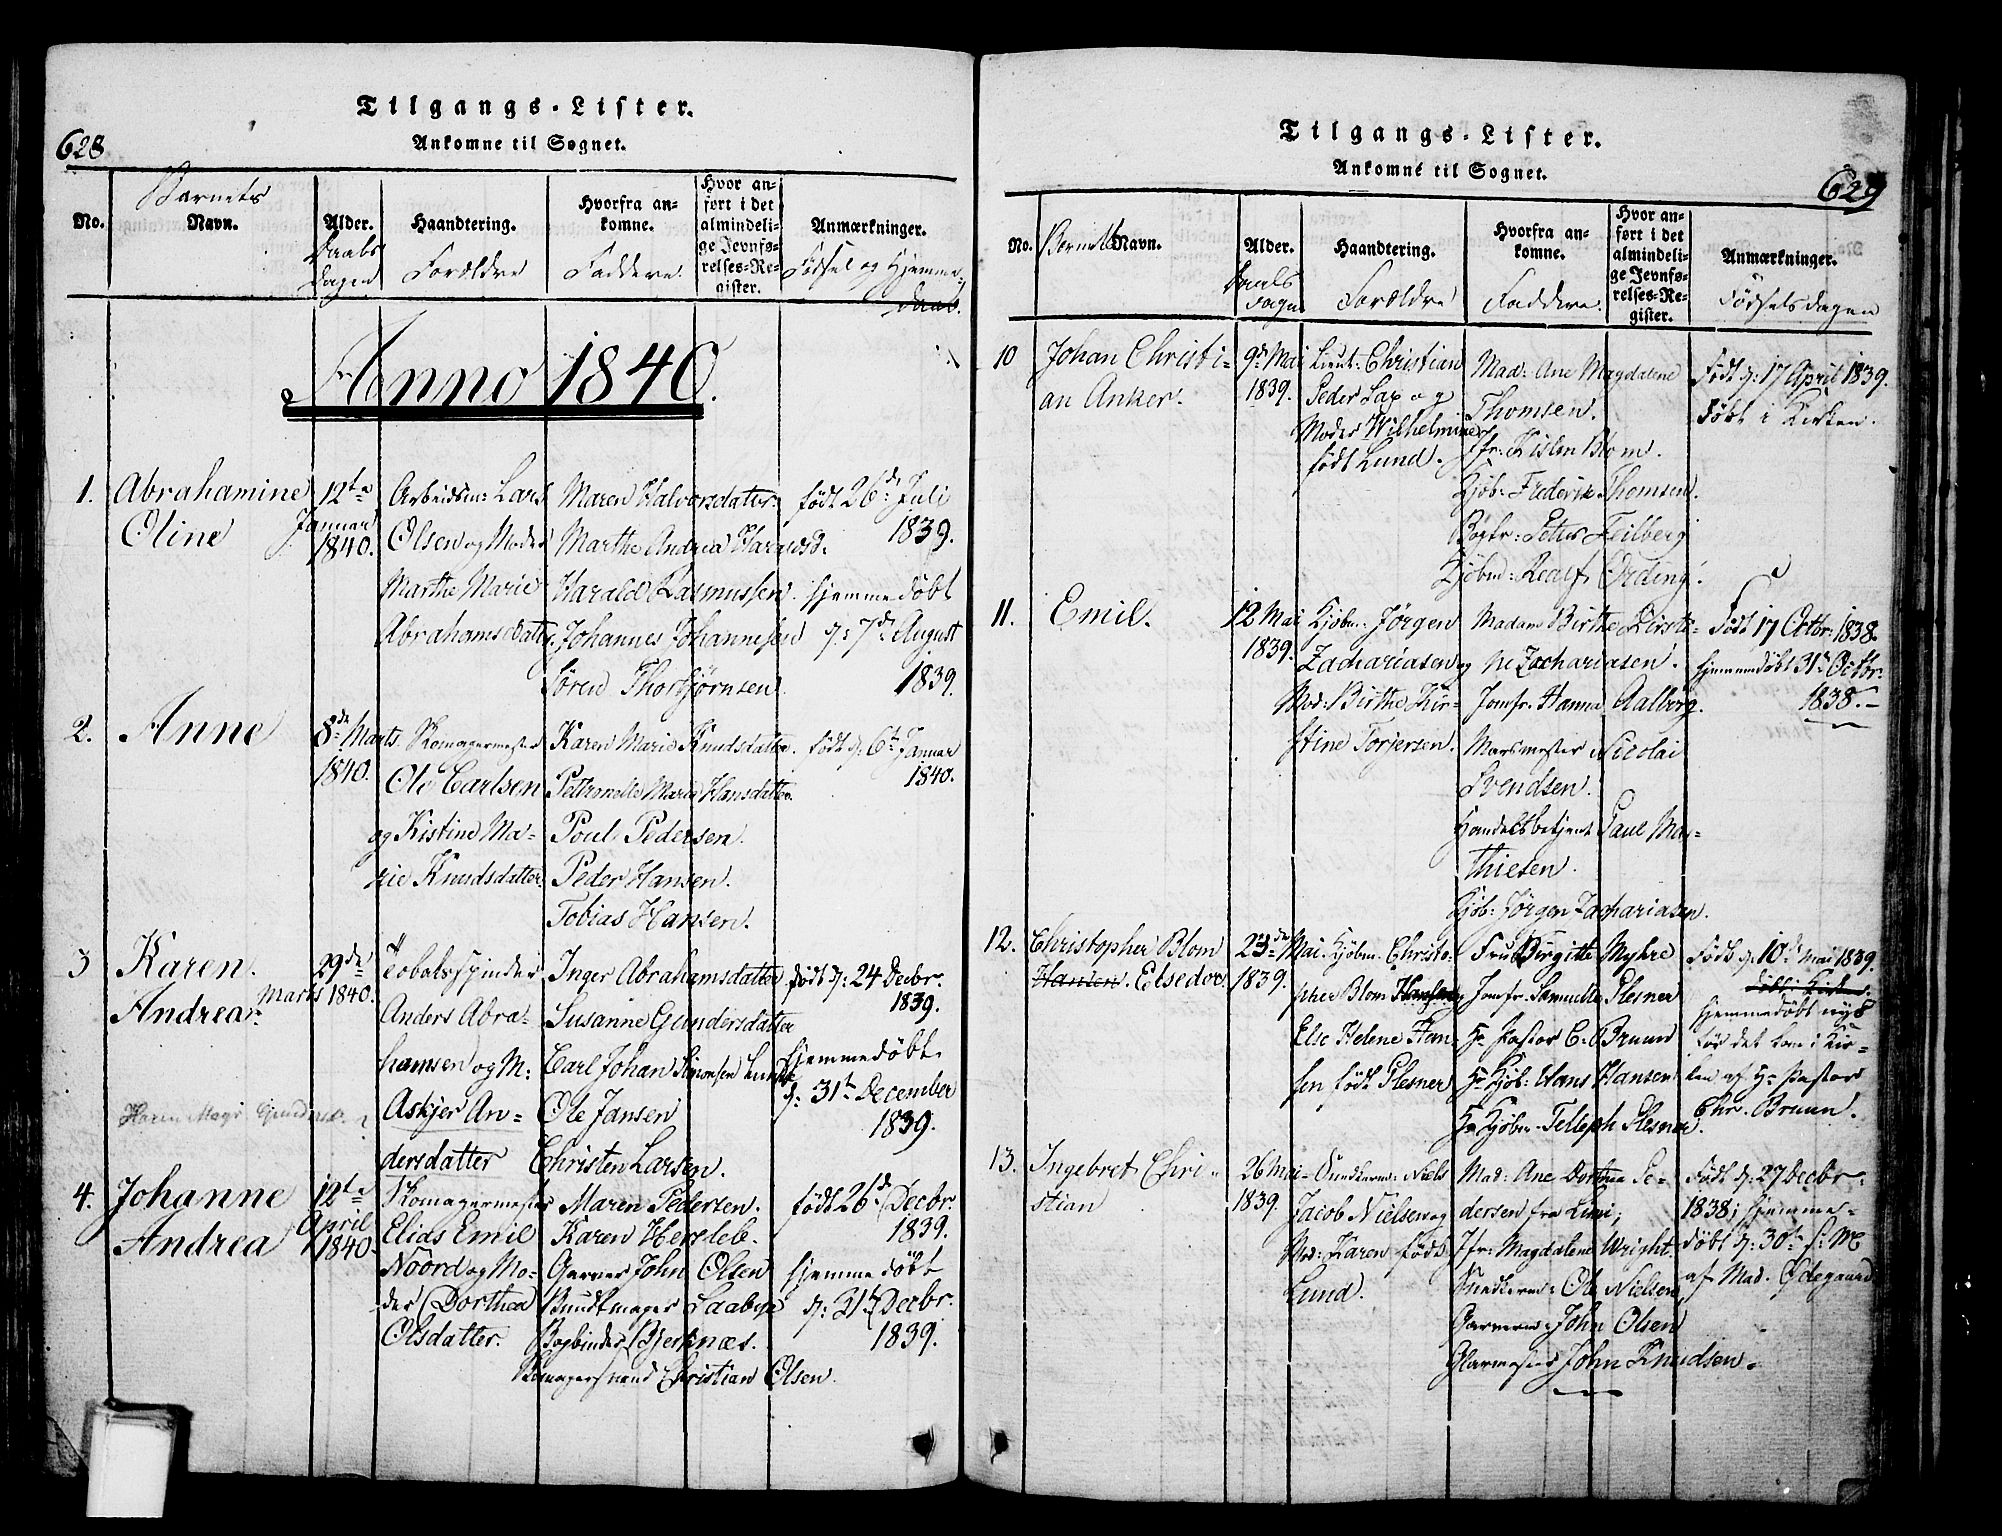 628
Tilgangs-Lister.
Ankomne til Sognet.
No.
Barnets
Navn.
Alder.
Daabs
Dagen
Haandtering.
Forældre
Hvorfra an-
komne.
Faddere.
Hvor an-
ført i det
almindeli-
ge Jevnfø-
relses-Re-
gister.
Anmærkninger.
Fødsel og Hjemme-
daab.
Anno 1840.
1.
Abrahamine
Oline
12te
Januar
1840.
Arbeidsm: Lars
Olsen og Moder
Marthe Marie
Abrahamsdatter.
Maren Halvorsdatter.
Marthe Andrea Haraldsd.
Harald Rasmussen.
Johannes Johannesen
Søren Thorbjørnsen.
født 26de Juli
1839.
hjemmedøbt
d: 7de August
1839.
2.
Anne
8de Marts
1840.
Romagermester
Ole Carlsen
og Kistine Ma-
rie Knudsdatter.
Karen Marie Knudsdatter.
Pettronelle Marie Hansdatter.
Poul Pedersen.
Peder Hansen.
Tobias Hansen.
født d: 6te Januar
1840.
3
Karen
Andrea
29de
Marts 1840.
Tobaksspinder
Anders Abra-
hamsen og M:
Askjer An-
dersdatter
Inger Abrahamsdatter
Susanne Gundersdatter
Carl Johan Simonsen
Ole Jansen
Christen Larsen.
født d: 24 Decbr.
1839.
hjemmedøbt
d: 31te December
1839.
4.
Johanne
Andrea
12te
April
1840.
Romagermester
Elias Emil
Noord og Mo-
der Dorthea
Olsdatter.
Maren Pedersen.
Karen Hersleb.
Garver John Olsen
Bundtmager Laabye
Bogbinder Bjerknæs.
Romagersvend Christian Olsen.
født 26de Decbr.
1839.
hjemmedøbt
d: 31te Decbr.
1839.
629
Tilgangs-Lister.
Ankomne til Sognet.
No.
Barnets Navn.
Alder.
Daabs
Dagen
Haandtering.
Forældre
Hvorfra an-
komne.
Faddere.
Hvor an-
ført i det
almindeli-
ge Jevnfø-
relses-Re-
gister.
Anmærkninger.
Fødselsdagen
10
Johan Christi-
an Anker.
9de Mai
1839.
Lieut: Christian
Peder Lax og
Moder Wilhelmine
født Lund.
Mad: Ane Magdalene
Thomsen.
Jfr: Kisten Blom.
Kjøb: Frederik Thomsen.
Bogtr: Peter Feilberg
Kjøbm: Realf Ording.
Født d: 17 April 1839.
Døbt i Kirken.
11.
Emil.
12 Mai
1839.
Kjøbm. Jørgen
Zachariasen og
Mod: Birthe Kir-
stine Torjersen.
Madam Birthe Kirsti-
ne Zachariasen.
Jomfr. Hanna Aalborg.
Marsmester Nicolai
Svendsen.
Handelsbetjent Paul Ma-
thiesen.
Kjøb: Jørgen Zachariasen.
Født 17 Octbr: 1838.
hjemmedøbt 31te Octbr.
1838.-
12.
Christopher Blom
Hansen. Elsedor.
23de Mai
1839.
Kjøbm. Christo-
pher Blom Hansen og
Else Helene Han-
sen født Plesner
Fru Birgitte Myhre
Jomfr. Samuelle Plesner
Hr Pastor C. Bruun
Hr Kjøb: Hans Hansen
Hr Kjøbm. Telleph Plesner.
Født d: 10de Mai 1839.
døbt i Kirken
hjemmedøbt nys
før det kom i Kir-
ken af Hr Pastor
Chr. Bruun.
13.
Ingebret Chri-
stian
26 Mai
1839.
Snedkerm: Niels
Jacob Nielsen og
Mod: Karen født
Lund.
Mad: Ane Dorthea Pe-
dersen fra
Jfr: Magdalene Wright.
Snedkerm: Ole Nielsen
Garverm: John Olsen
Glarmester John Knudsen.
Født d: 27 Decbr.
1838; hjemme-
døbt d: 30te s: M
af Mad. Ødegaard